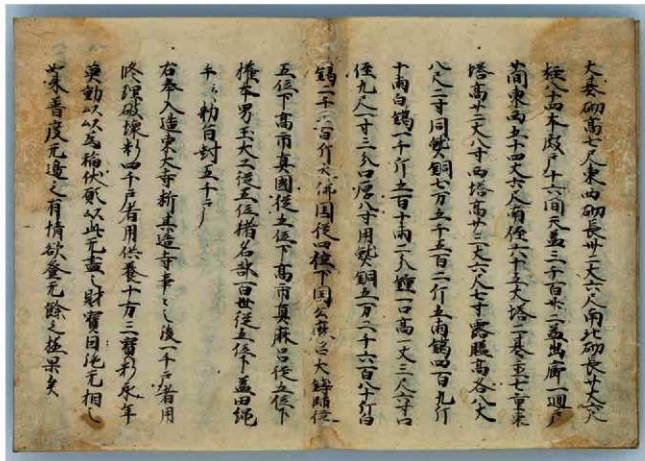 大基砌高七尺東西砌長卅二丈六尺南北砌長廿丈六尺
柱八十四木殿戸十六間天蓋三千百廿二蓋出廊一廻戸
廿間東西五十四丈六尺南径六十五丈塔二基並七重東
塔高廿三丈八寸西塔高廿三丈六尺七寸露盤高各八丈
八尺二寸同鋳銅七万五千五百二斤五両錫四百九斤
十両白鑞一千斤五百十両二分鐘一口高一丈三尺六寸口
径九尺一寸三分口厚八寸用鋳銅五万二千六百八十斤白
錫二千三百斤大佛国従四位下国公麻呂大鋳師従
五位下高市真国従五位下高市真麻呂従五位下
柿本男玉大工従五位猪名部百世従五位下益田縄
手々勅旨封五千戸
右奉入造東大寺新其造寺事了之後一千戸者用
修理破壊新四千戸者用供養十方三寶新永年
莫動以以為福伏願以此无盡之財寶因施无相之
如来普度无邊之有情欲登无餘之極果矣